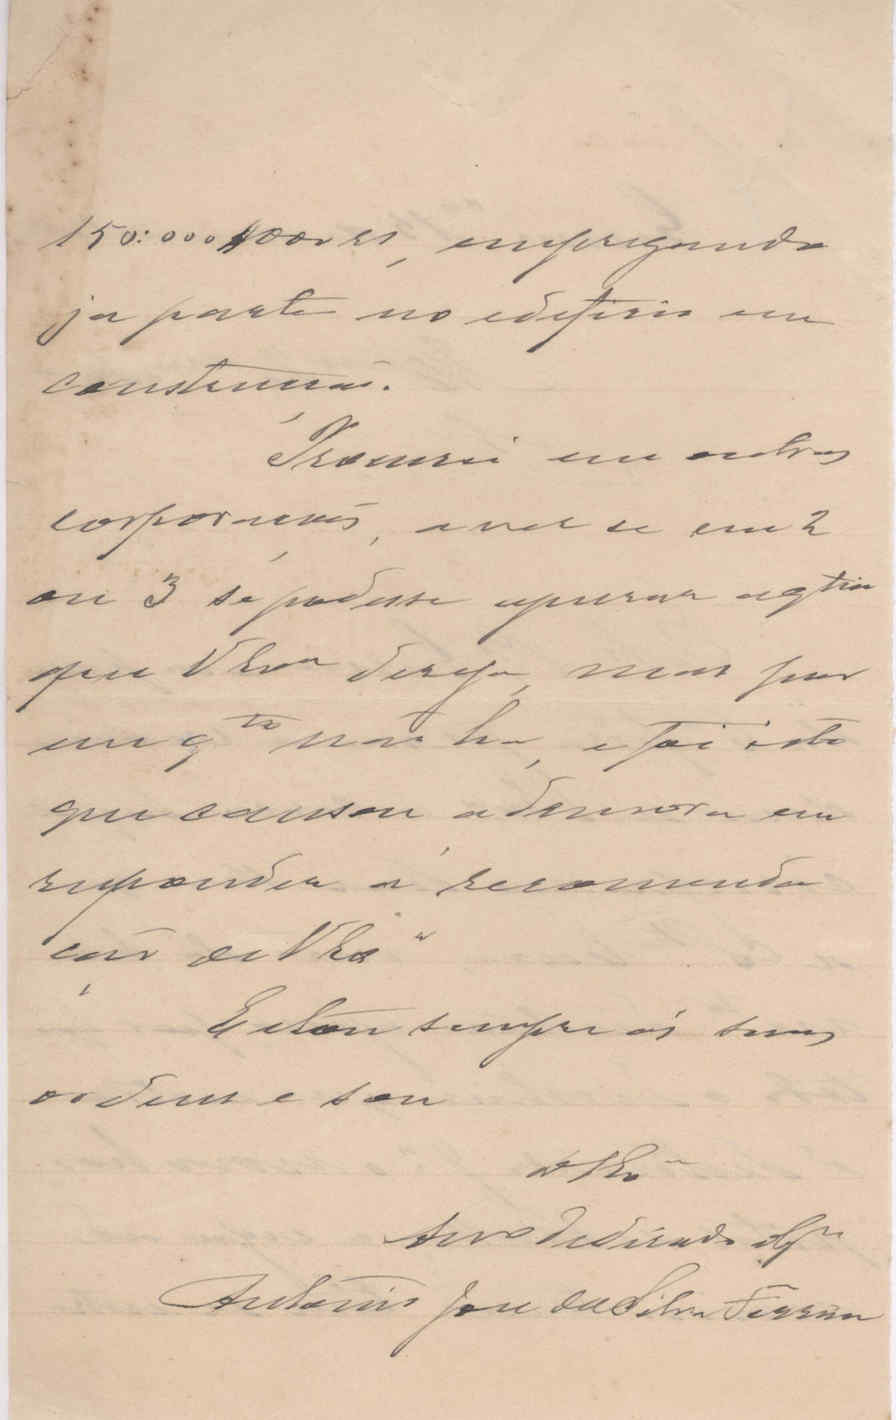 150:000$000 rs, empregando
ja parte no edeficio em
construcção.
Procurei em outras
corporações, a ver se em 2
ou 3 se podesse apurar a qtia
que VExa deseja, mas por
em qto não ha, e foi isto
que causou a demora em
responder á recomenda
ção de VExa
Estou sempre ás suas
ordens e sou
de VExa
Amo dedicado
Antonio Jose da Silva Ferreira